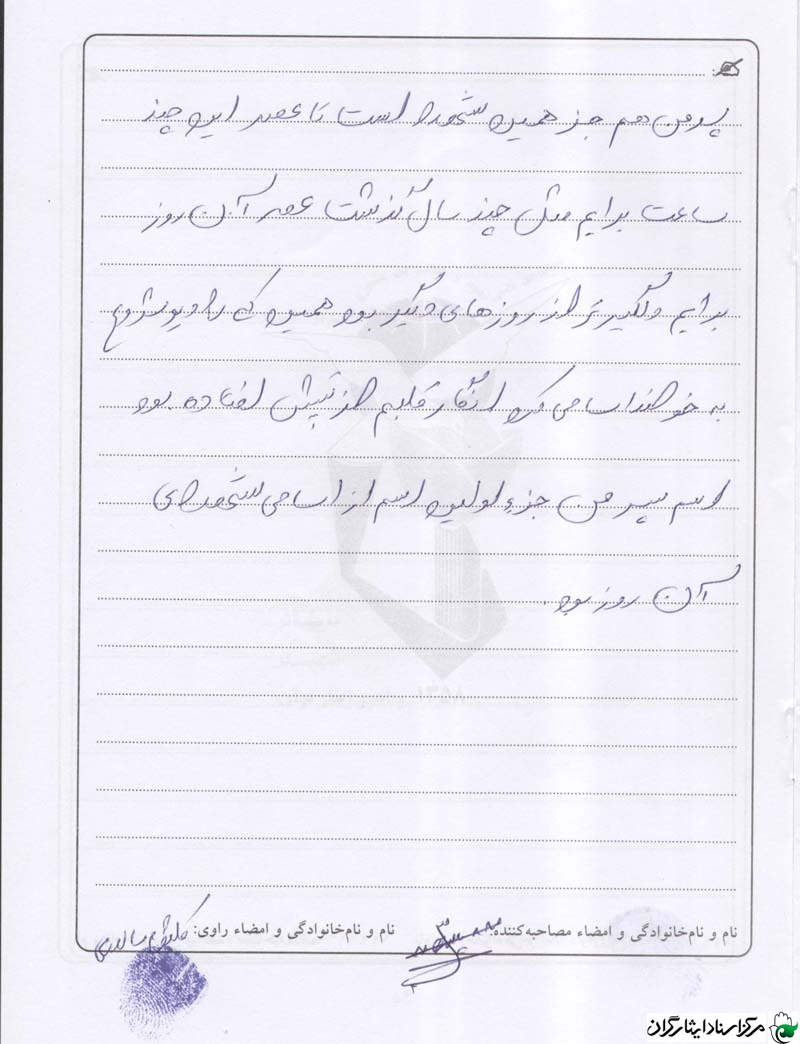 پسر من هم جز همین شهدا است تا عصر این چند
ساعت برایم مثل چند سال گذشت عصر آن روز
برایم دلگیرتر از روزهای دیگر بود همین که رادیو شروع
به خواندن اسامی کرد انگار قلبم از تپش افتاده بود
اسم پسر من جزء اولین اسم از اسامی شهدای
آن روز بود.
نام و نام خانوادگی و امضاء مصاحبه کننده:
نام و نام خانوادگی و امضاء راوی:
مرکز اسناد ایثارگران